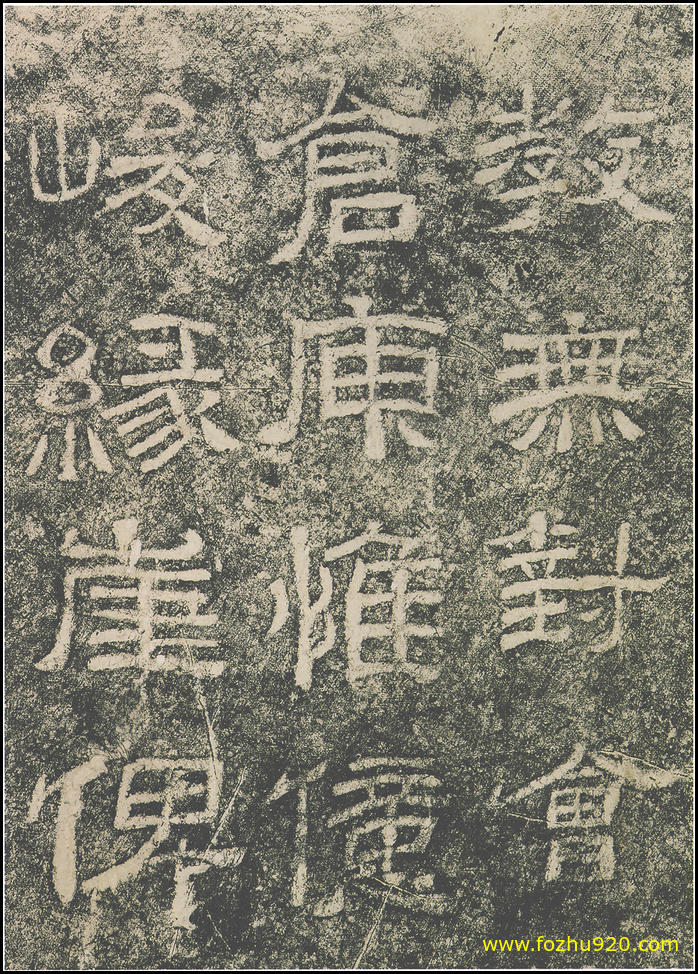 教無對會
倉庾惟億
峻緣崖俾
www.fozhu920.com